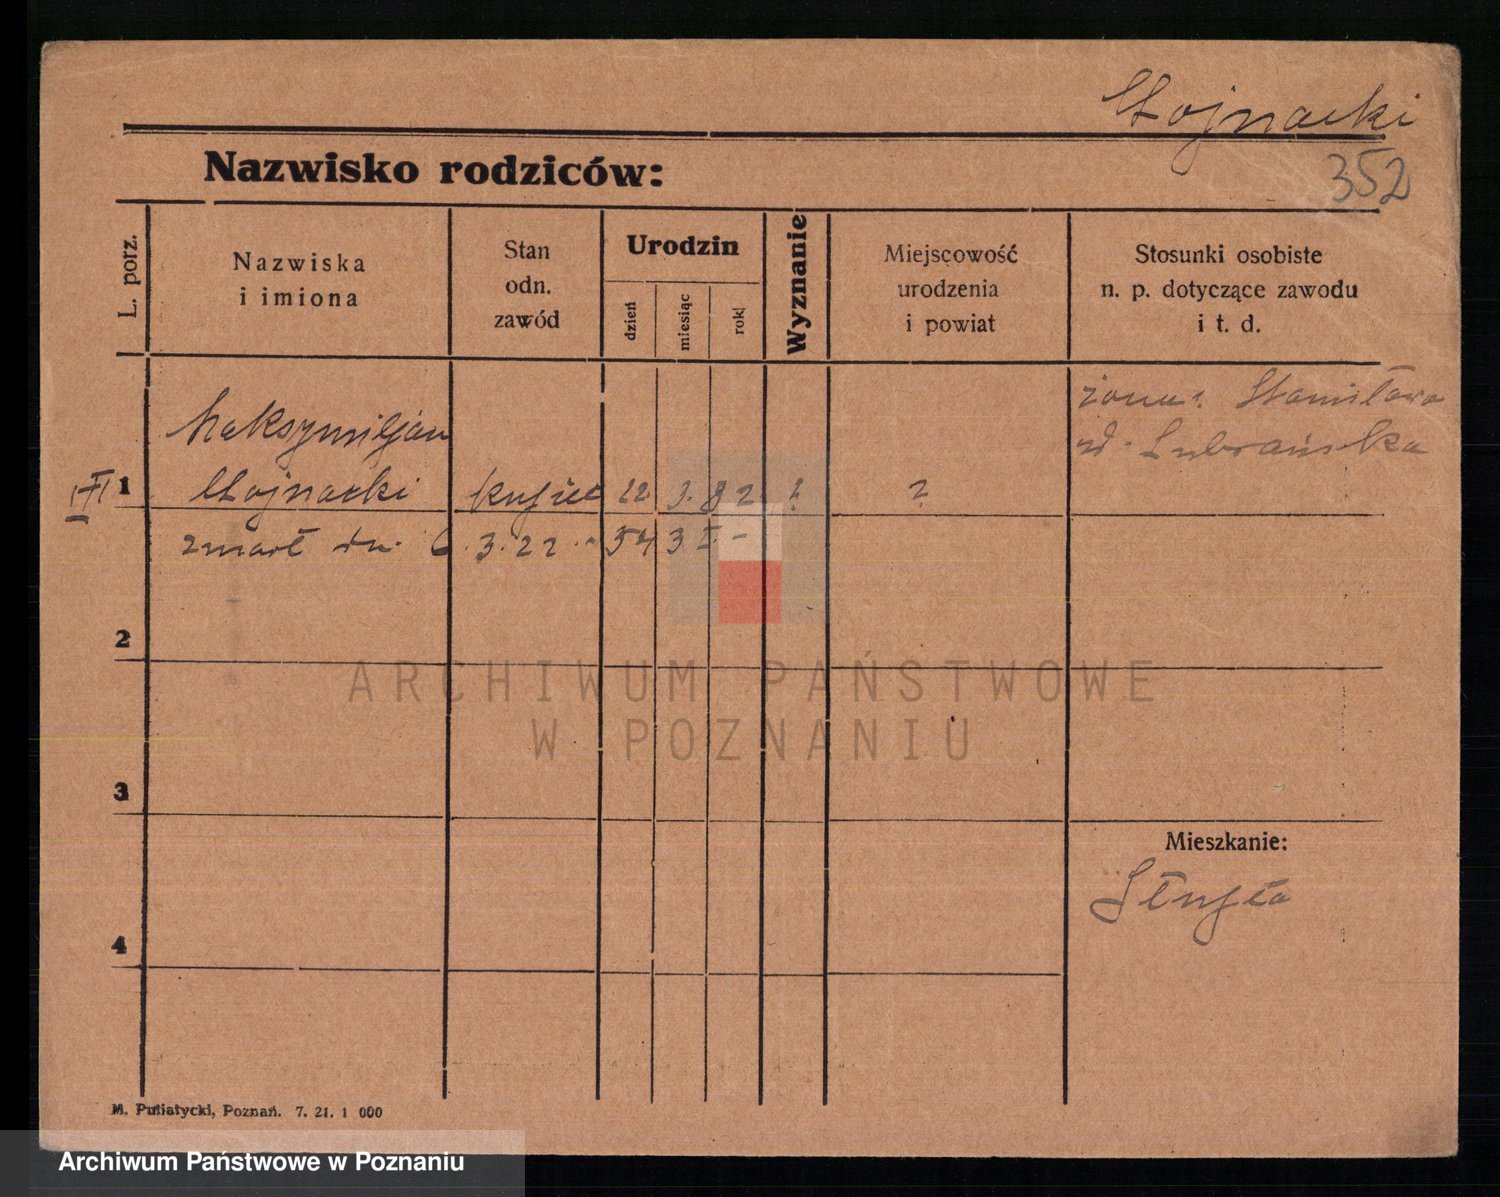 Wojnacki
352
Nazwisko rodziców:
L. porz.
Nazwiska
i imiona
Stan
odn.
zawód
Urodzin
dzień
miesiąc
rok
Wyznanie
Miejscowość
urodzenia
i powiat
Stosunki osobiste
n. p. dotyczące zawodu
i t. d.
żona: Stanisława
Lubrańska
Maksymiljan
1 Wojnacki kupiec 22. 9. 82 ? ?
zmarł dn. 6.3.22
2
3
4
Mieszkanie:
M. Putiatycki, Poznań. 7. 21. 1 000
ARCHIWUM PAŃSTWOWE
W POZNANIU
Archiwum Państwowe w Poznaniu